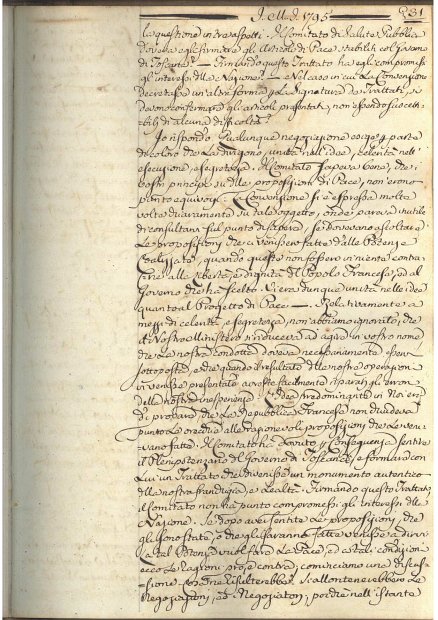 I. M. D. 1795 231
la questione in tre aspetti. Il Comitato di Salute Pubblica
doveva egli formare gli Articoli di Pace stabiliti col Governo
di Toscana? — Firmando questo Trattato ha egli compromessi
gl'interessi della Nazione? — Nel caso in cui la Convenzione
Decretasse un'altra forma per la Signatura de Trattati, si
devono confermare gli articoli presentati, non essendo suscet-
tibili di alcuna difficoltà?
Io rispondo. Qualunque negoziazione esige per parte
di coloro che la dirigono, unità nell'idee, celerità nell'
esecuzione, e segretezza. Il Comitato sapeva bene, che i
vostri principi sulle proposizioni di Pace, non erano
punto equivoci. La Convenzione si è espressa molte
volte chiaramente su tale oggetto, onde pareva inutile
di consultarla sul punto di sapere, se dovevano ascoltare
le proposizioni che ci venissero fatte dalle Potenze
Coalizzate, quando queste non fossero in niente contra-
rie alla libertà, e dignità del Popolo Francese, ed al
Governo che ha scelto. Vi era dunque unità nelle idee
quanto al Progetto di Pace — Relativamente a
mezzi di celerità, e segretezza, non abbiamo ignorato, che
il Vostro Ministero si riduceva ad agire in vostro nome
che la nostra condotta doveva necessariamente esservi
sottoposta, e che quando il resultato delle nostre operazioni
vi venisse presentato avreste facilmente riparati gli errori
della nostra inesperienza. L'idea predominante in Noi era
di provare che la Repubblica Francese non chiudeva
punto le orecchie alle ragionevoli proposizioni che le veni-
vano fatte. Il Comitato ha dovuto in conseguenza sentire
il Plenipotenziario del Governo di Toscana, e formare con
Lui un Trattato che divenisse un monumento autentico
della nostra franchigia, e lealtà. Firmando questo Trattato
il Comitato non ha punto compromessi gl'interessi della
Nazione. Se dopo aver sentite le proposizioni, che
gli sono state, o che gli saranno fatte venisse a dirvi
la tal Potenza vuol fare la Pace, e a tali condizioni
ecco le ragioni pro, e contro, cominciamo una discus-
sione. Cosa ne risulterebbe? Si allontanerebbero le
Negoziazioni, ed i Negoziatori, poiché nell'istante